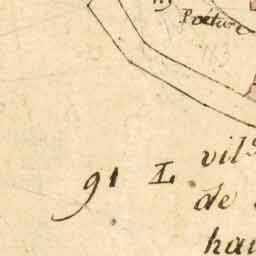 Pature
91 L. vil.s
de
hau